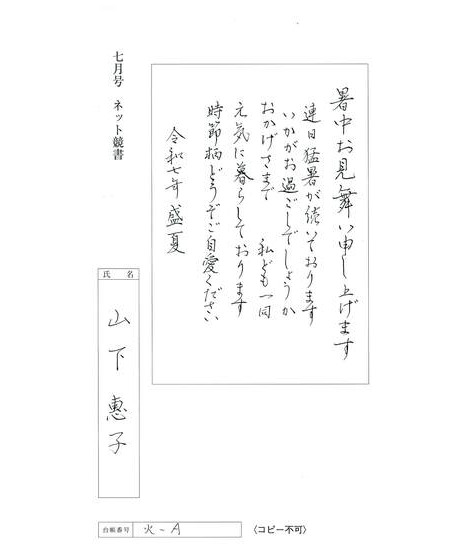 七月号 ネット競書
暑中お見舞い申し上げます
連日猛暑が続いております
いかがお過ごしでしょうか
おかげさまで 私ども一同
元気に暮らしております
時節柄どうぞご自愛ください
令和七年 盛夏
氏名
山下恵子
台帳番号 火-A
〈コピー不可〉